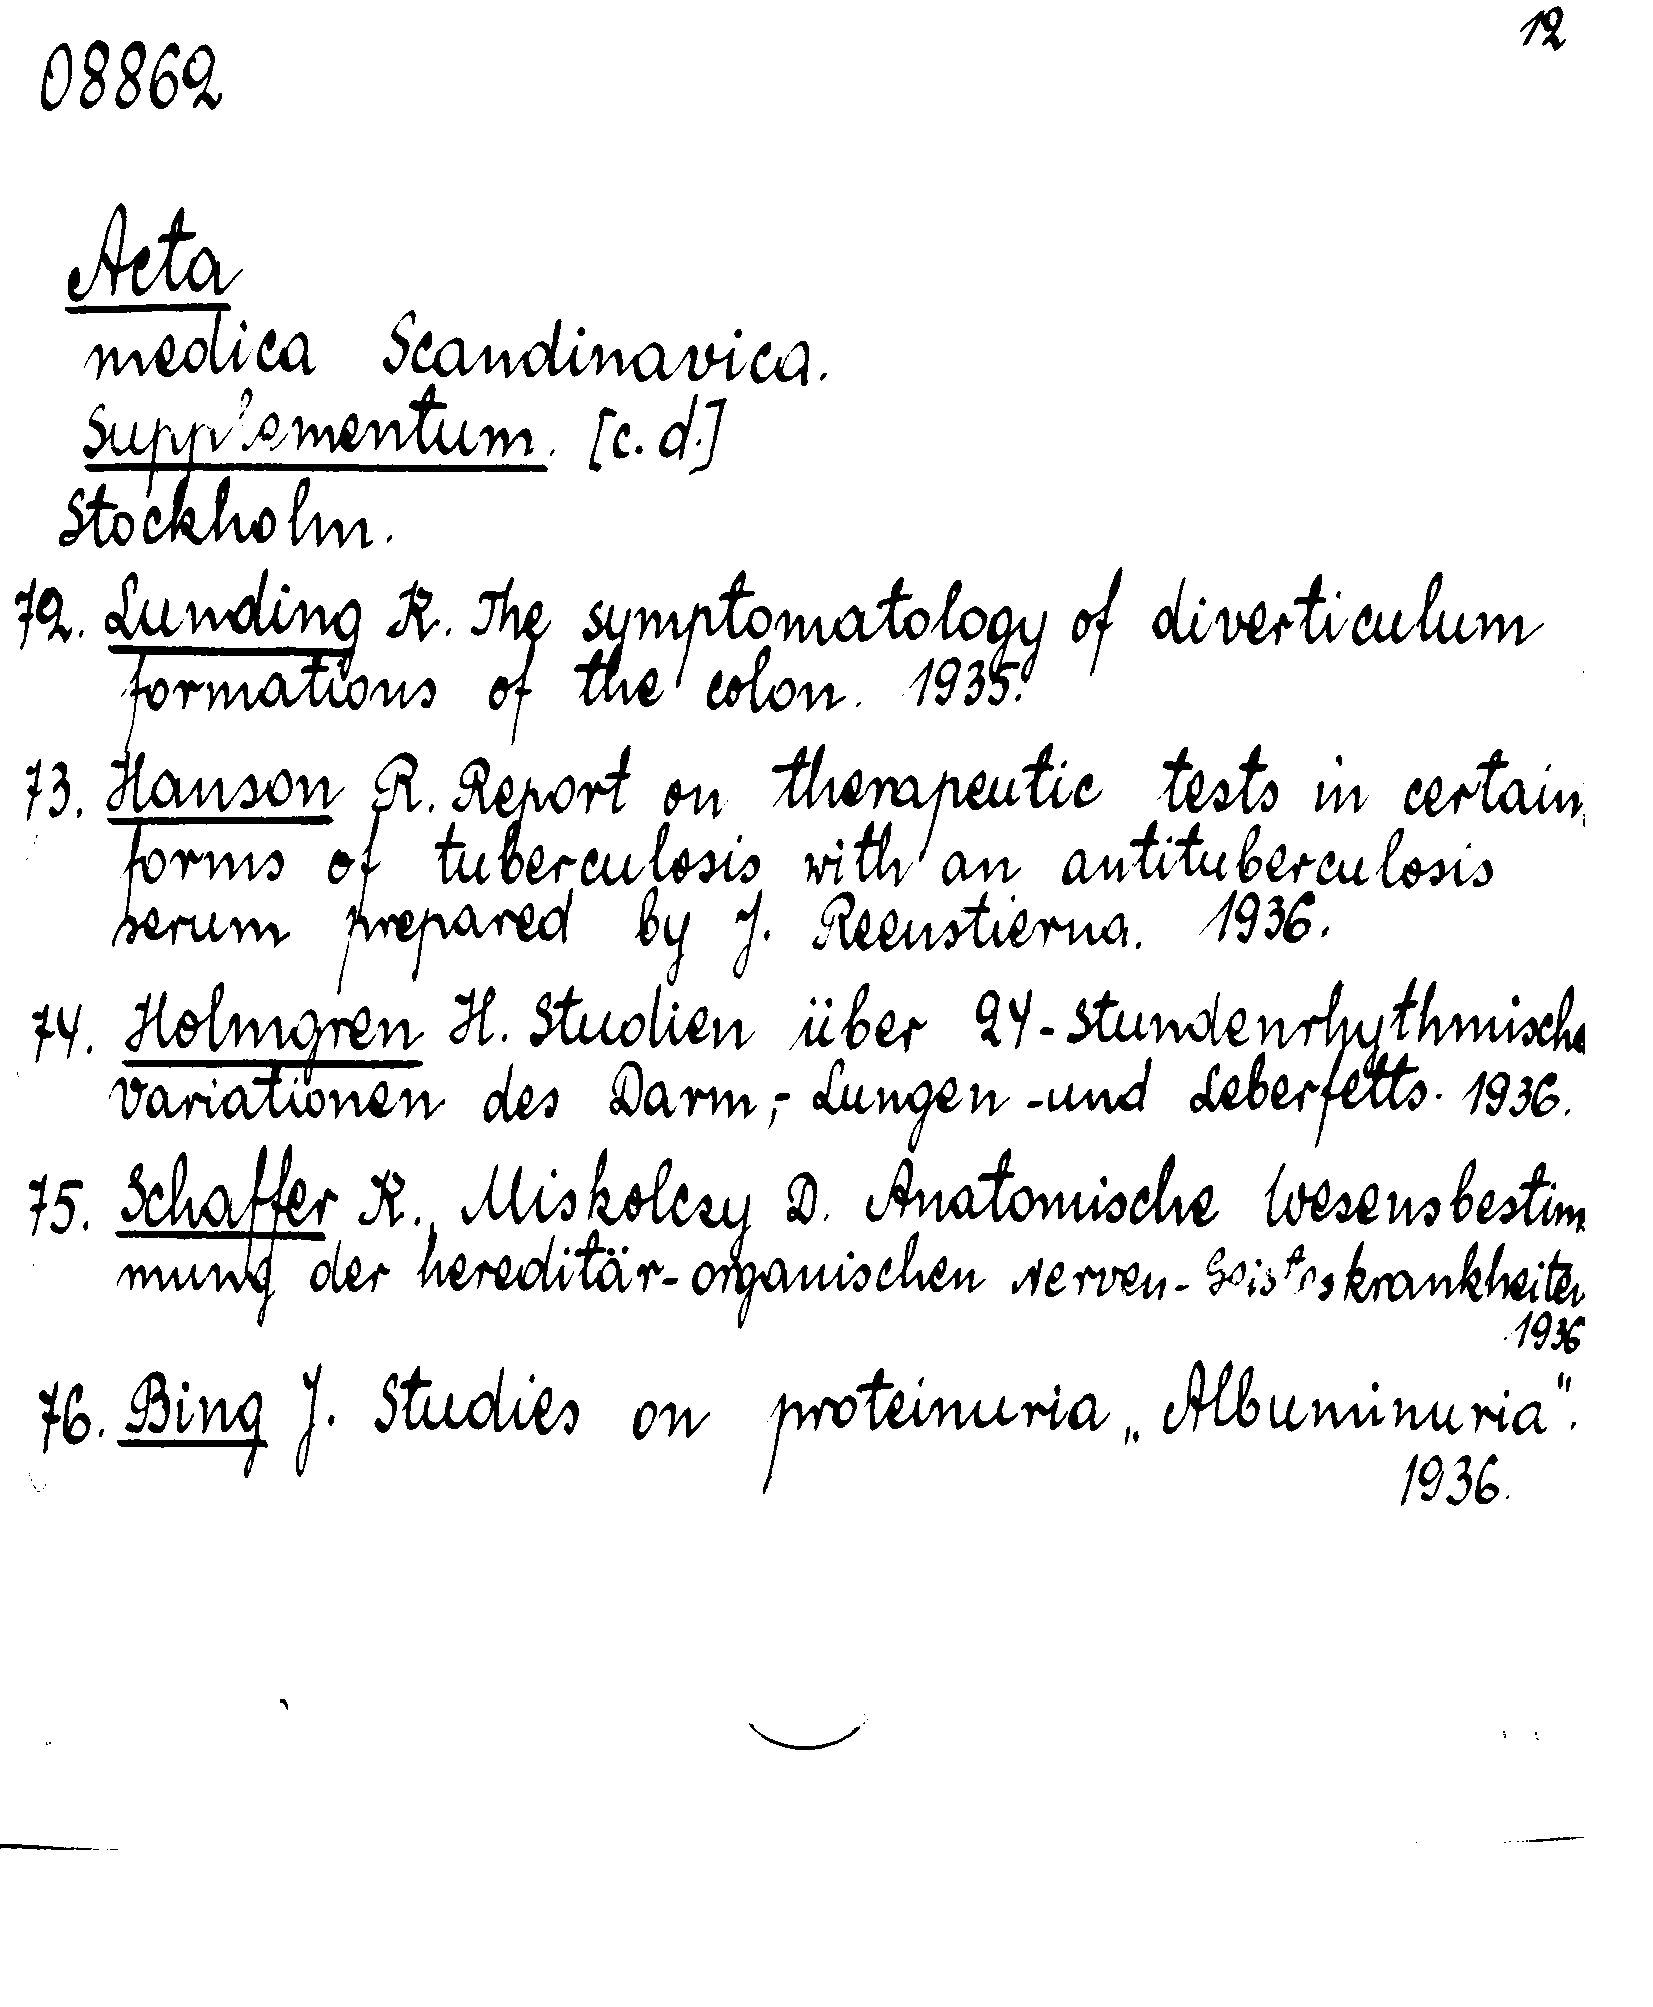 12
08862
Acta
medica Scandinavica.
Supplementum. [c.d.]
Stockholm.
72. Lunding K. The symptomatology of diverticulum
formations of the colon. 1935.
73. Hanson R. Report on therapeutic tests in certain
forms of tuberculosis with an antituberculosis
serum prepared by J. Reenstierna. 1936.
74. Holmgren H. Studien über 24-stundenrhythmische
Variationen des Darm,- Lungen -und Leberfetts. 1936.
75. Schaffer K., Miskolczy D. Anatomische Wesensbestim
mung der hereditär-organischen Nerven- Geisteskrankheiten
1936
76. Bing J. Studies on proteinuria „Albuminuria".
1936.